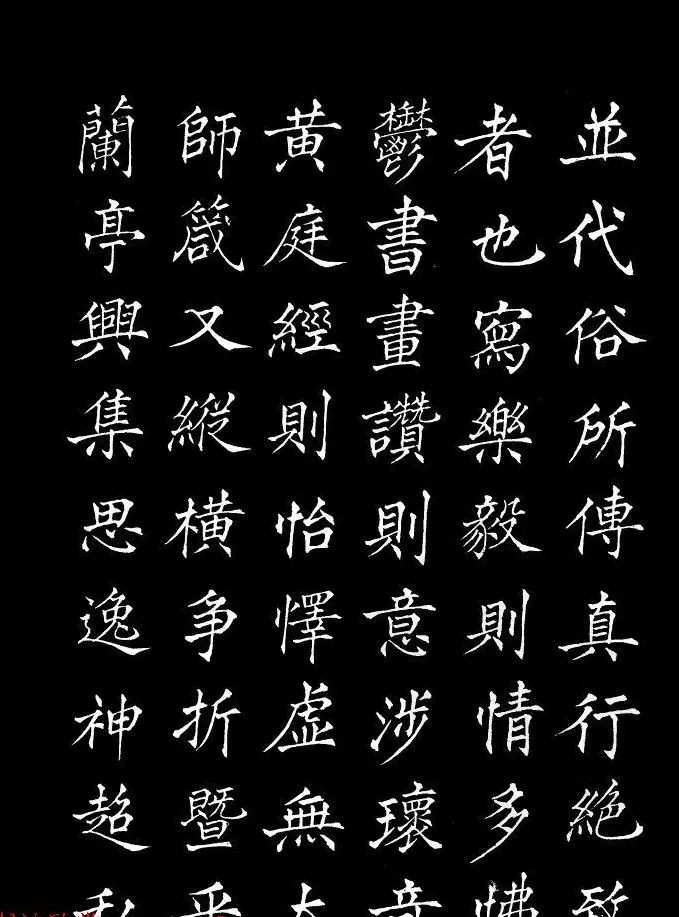 並代俗所傳真行絕
者也寫樂毅則情多
鬱書畫讚則意涉瓌
黄庭經則怡懌虛無
師箴又縱橫爭折暨
蘭亭興集思逸神超